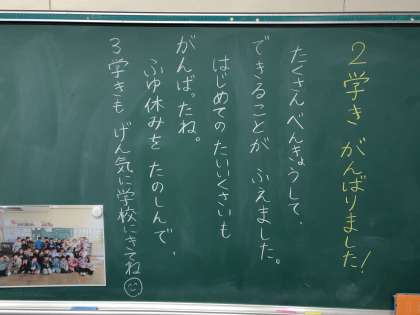 2学き がんばりました!
たくさんべんきょうして、
できることが ふえました。
はじめてのたいいくさいも
がんばったね。
ふゆ休みを たのしんで、
3学きも げん気に学校にきてね